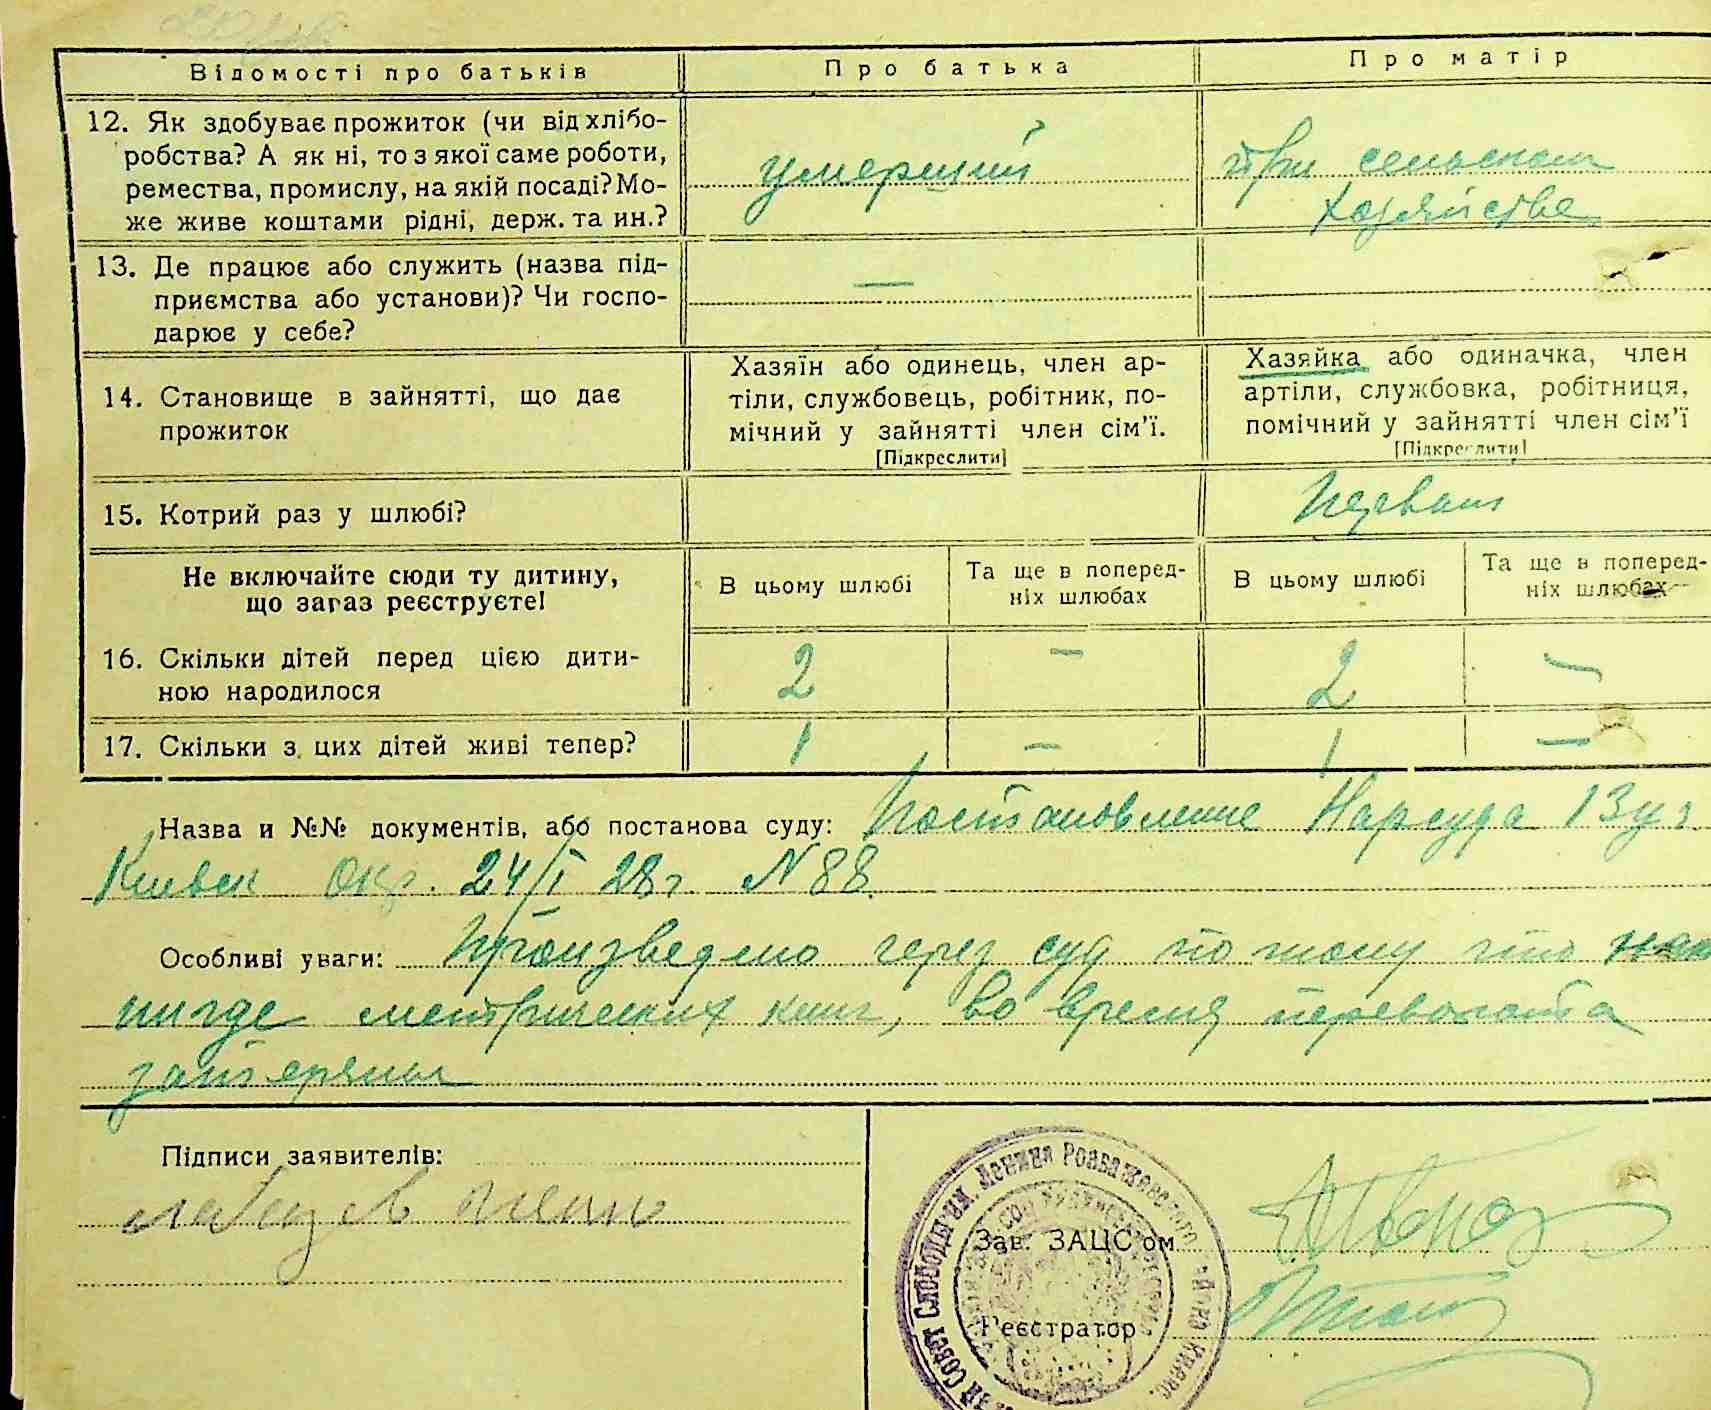 Відомості про батьків
Про батька
Про матір
12. Як здобуває прожиток (чи від хлібо-
робства? А як ні, то з якої саме роботи,
ремества, промислу, на якій посаді? Мо-
же живе коштами рідні, держ. та ин.?
умерший
при сельском
хозяйстве
13. Де працює або служить (назва під-
приємства або установи)? Чи госпо-
дарює у себе?
—
14. Становище в зайнятті, що дає
прожиток
Хазяїн або одинець, член ар-
тіли, службовець, робітник, по-
мічний у зайнятті член сім'ї.
[Підкреслити]
Хазяйка або одиначка, член
артіли, службовка, робітниця,
помічний у зайнятті член сім'ї
[Підкреслити]
15. Котрий раз у шлюбі?
Не включайте сюди ту дитину,
що зараз реєструєте!
В цьому шлюбі
Та ще в поперед-
ніх шлюбах
В цьому шлюбі
Та ще в поперед-
ніх шлюбах
16. Скільки дітей перед цією дити-
ною народилося
2
—
2
—
17. Скільки з цих дітей живі тепер?
1
—
1
—
Назва и №№ документів, або постанова суду: Постановление Нарсуда 13 уч
Киевск Окр. 24/I 28г. N 88.
Особливі уваги: Произведено через суд по тому что
нигде метрических книг, во время переворота
затеряны
Підписи заявителів:
Зав. ЗАЦС'ом
Реєстратор
Совет Слободы им. Ленина Розважевского